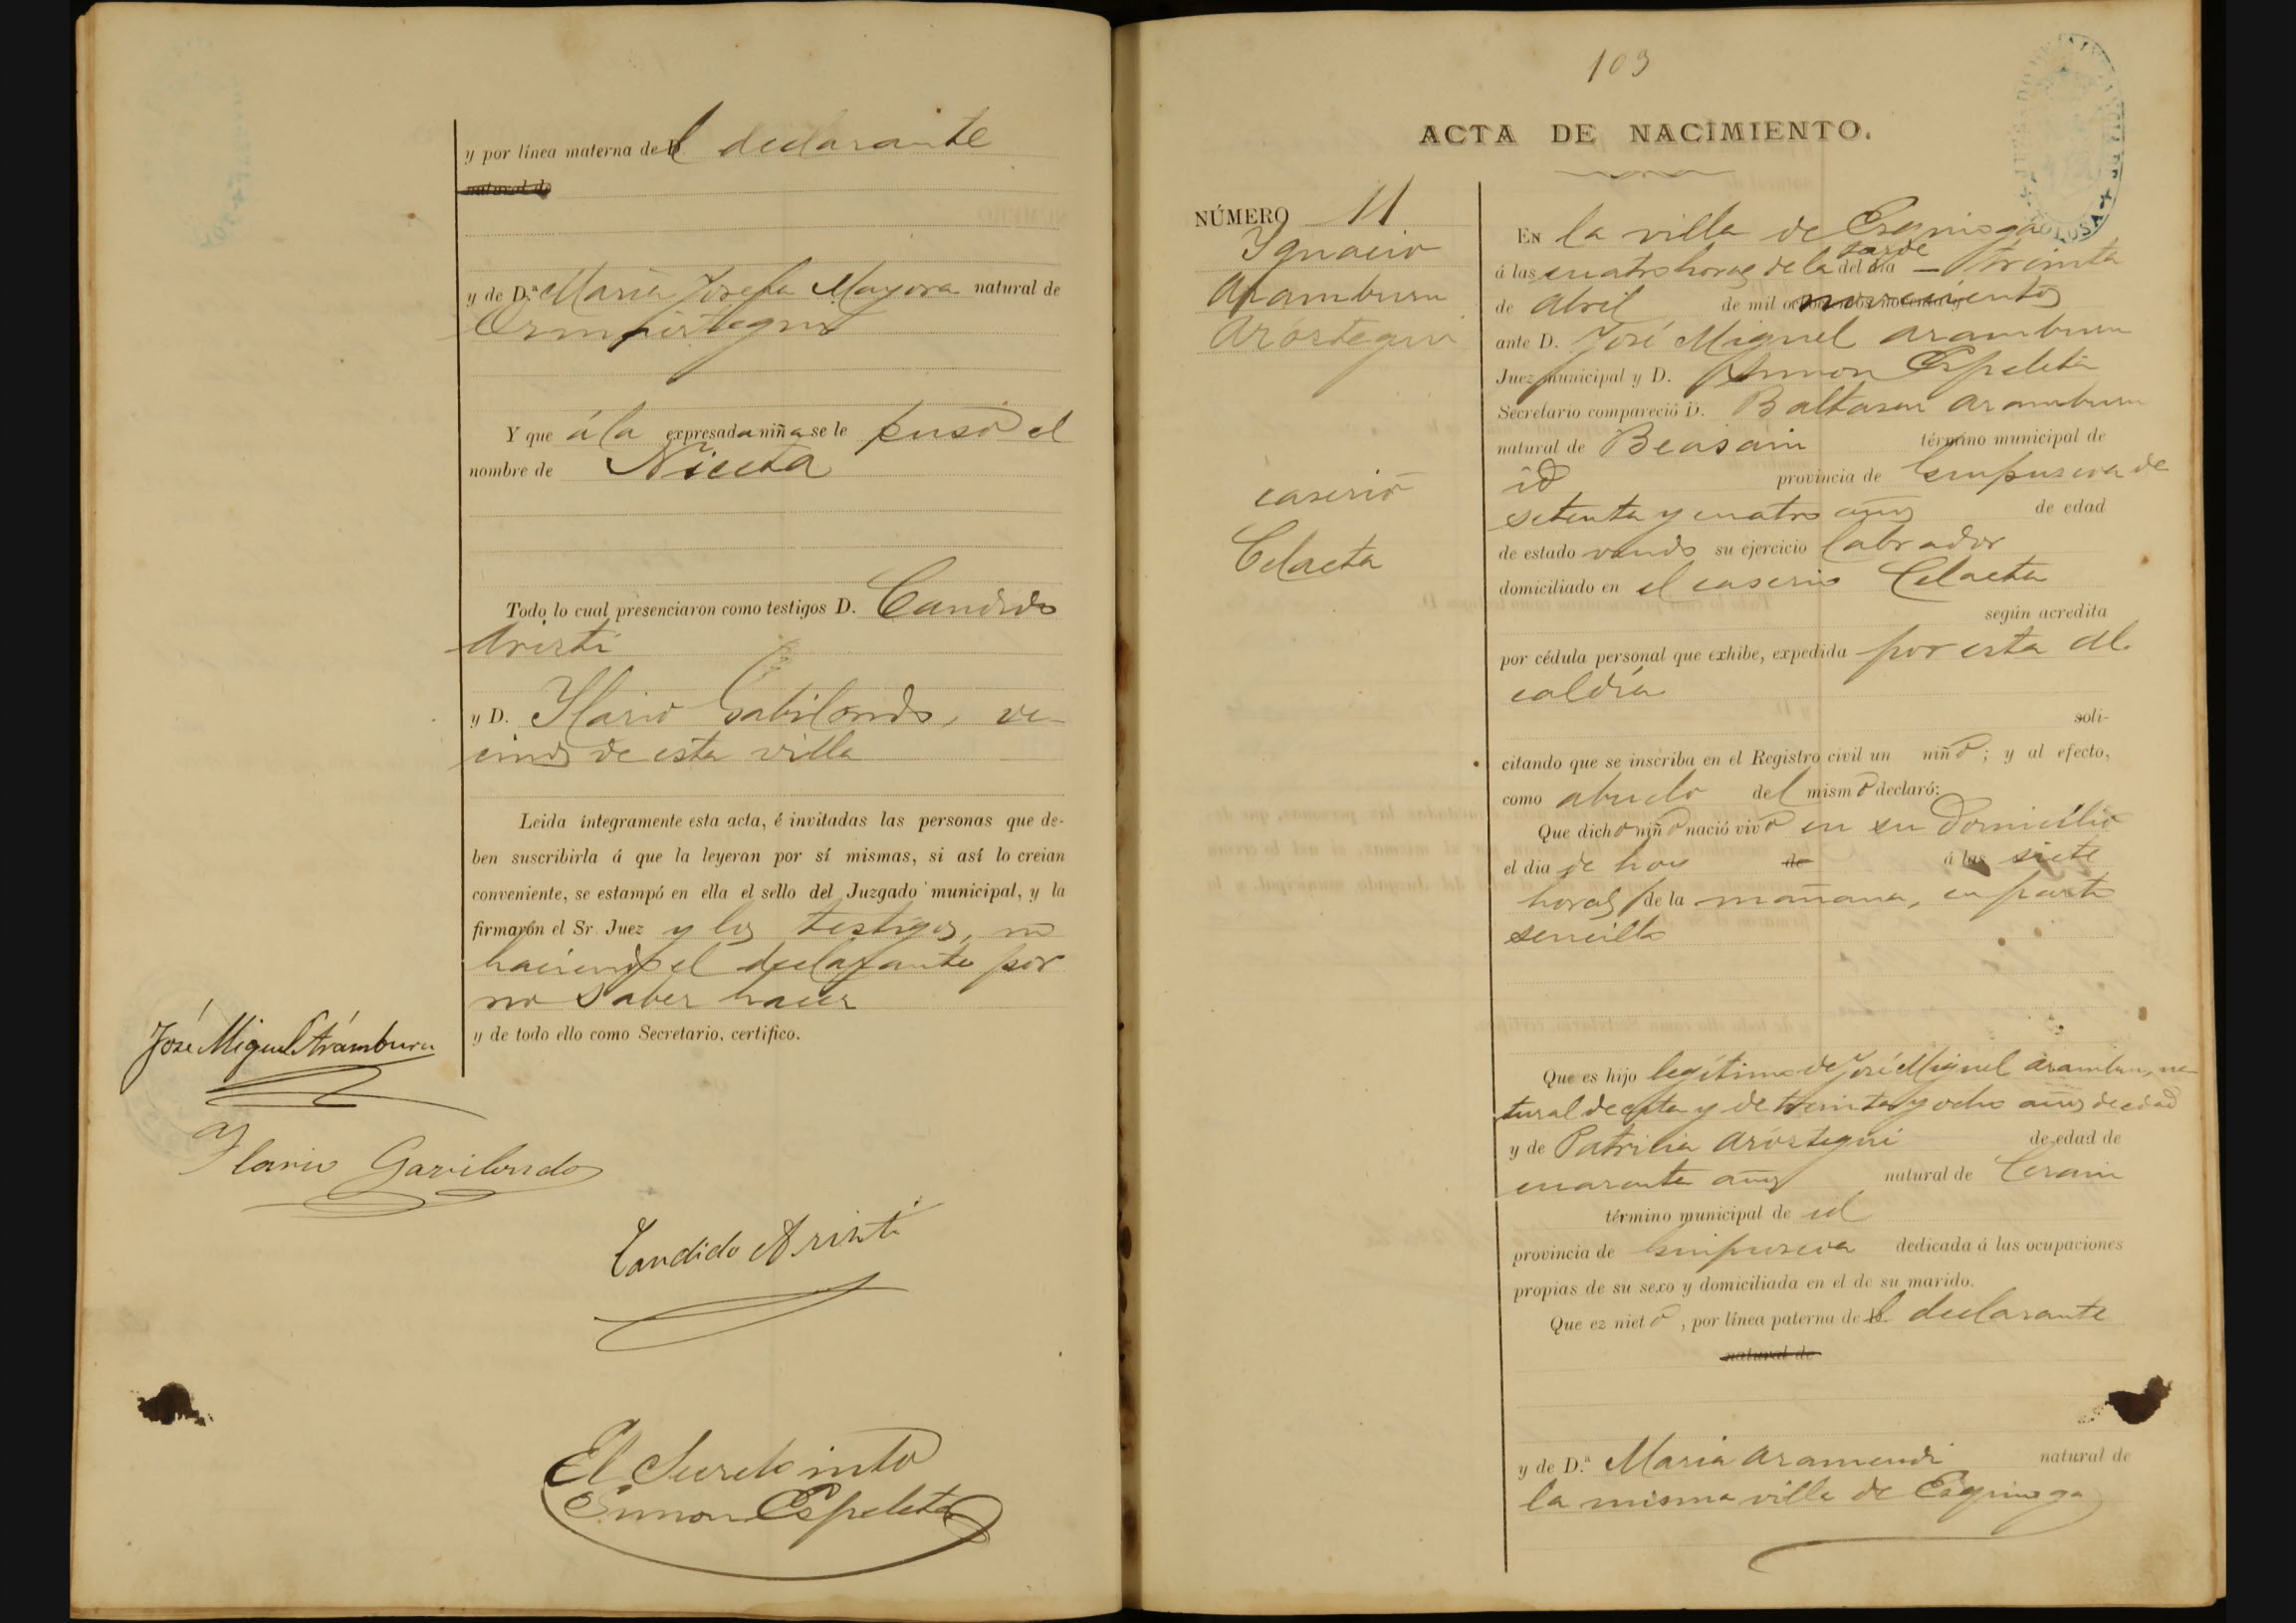 y por línea materna del declarante
natural de
y de D.ª Maria Josefa Mayora natural de
Ormaiztegui
Y que á la expresada niña se le puso el
nombre de Niceta
Todo lo cual presenciaron como testigos D. Candido
Aristi
y D. Ylario Gabilondo, ve-
cinos de esta villa
Leida íntegramente esta acta, é invitadas las personas que de-
ben suscribirla á que la leyeran por sí mismas, si así lo creian
conveniente, se estampó en ella el sello del Juzgado municipal, y la
firmarón el Sr. Juez y los testigos, no
haciendo el declarante por
no saber hacer
y de todo ello como Secretario, certifico.
José Miguel Arámburu
Ylario Gavilondo
Candido Aristi
El Secretario
Simon Espeleta
103
ACTA DE NACIMIENTO.
NÚMERO 11
Ygnacio
Aramburu
Aróstegui
caserio
Celaeta
En la villa de Ezquioga
á las cuatro horas de la tarde del dia Treinta
de Abril de mil novecientos
ante D. José Miguel Aramburu
Juez municipal y D. Simon Espeleta
Secretario compareció D. Baltasar Aramburu
natural de Beasain término municipal de
id provincia de Guipuzcoa de
setenta y cuatro años de edad
de estado viudo su ejercicio labrador
domiciliado en el caserio Celaeta
según acredita
por cédula personal que exhibe, expedida por esta Al-
caldia
soli-
citando que se inscriba en el Registro civil un niño; y al efecto,
como abuelo del mismo declaró:
Que dicho niño nació vivo en su domicilio
el dia de hoy de á las siete
horas de la mañana, en parto
sencillo
Que es hijo legítimo de José Miguel Aramburu, na-
tural de esta y de treinta y ocho años de edad
y de Patricia Aróstegui de edad de
cuarenta años natural de Cerain
término municipal de id
provincia de Guipuzcoa dedicada á las ocupaciones
propias de su sexo y domiciliada en el de su marido.
Que ez nieto, por línea paterna del declarante
natural de
y de D.ª Maria Aramendi natural de
la misma villa de Ezquioga